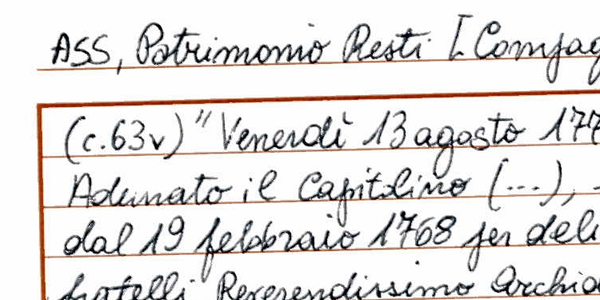 ASS, Patrimonio Resti [Compag
(c.63v) "Venerdì 13 agosto 177
Adunato il Capitolino (...),
dal 19 febbraio 1768 per deli
fratelli Reverendissimo Archid